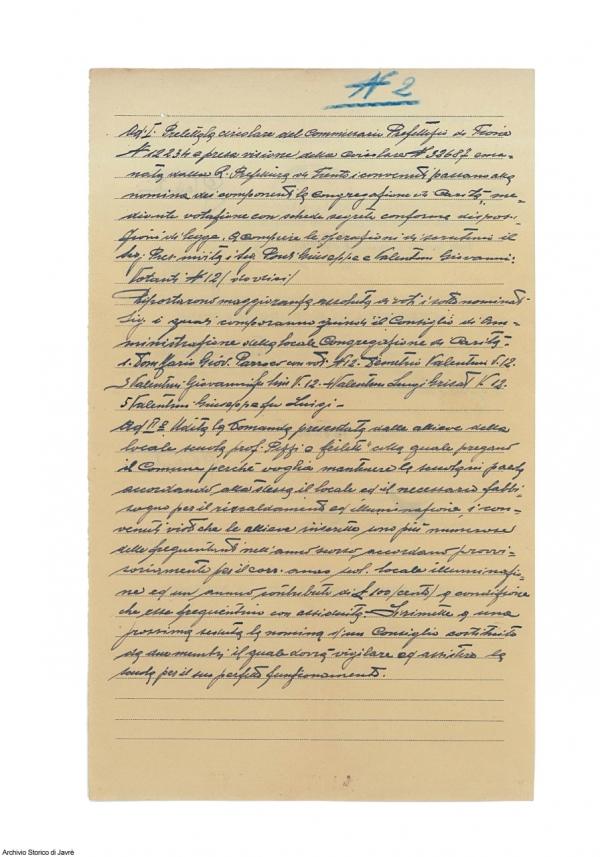 N 2
Ad. I. Preletta la circolare del Commissario Prefettizio di Tione
N 12234 e presa visione della circolare N 33687 ema-
nata dalla R. Prefettura di Trento i convenuti passano alla
nomina dei componenti la Congregazione di Carità, me-
diante votazione con schede segrete conforme dispos-
izioni di legge. A compiere le operazioni di scrutinio il
Sig. Pres. invita i Sig. Giuseppe e Valentini Giovanni:
Votanti N 12 (dodici)
Riportarono maggioranza assoluta di voti i sotto nominati
Sig. i quali comporranno quindi il Consiglio di Am-
ministrazione della locale Congregazione di Carità -
1. Don Mario Giov. Parroco con voti N 12. Demetrio Valentini V. 12.
3 Valentini Giovanni V. 12 - 4 Valentini Luigi V. 12
5 Valentini Giuseppe fu Luigi -
Ad II° Udita la domanda presentata dalle allieve della
locale scuola prof. Pizzi e colla quale pregano
il Comune perchè voglia mantenere la scuola
accordando alla stessa il locale ed il necessario fabbi-
sogno per il riscaldamento ed illuminazione, i con-
venuti visto che le allieve inscritte sono più numerose
delle frequentanti nell'anno scorso, accordano provvi-
soriamente per il corr. anno scol. locale illuminazio-
ne ed un annuo contributo di £ 100 (cento) a condizione
che esse frequentino con assiduità. Si rimette a una
prossima seduta la nomina d'un Consiglio costituito
da due membri il quale dovrà vigilare ed assistere la
scuola per il suo perfetto funzionamento.
Archivio Storico di Javrè